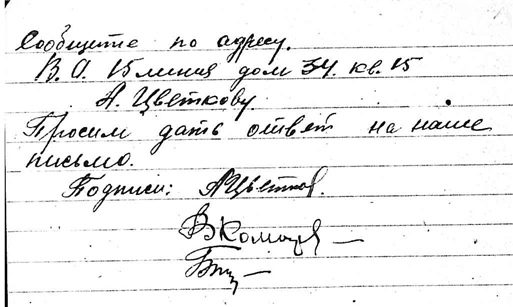 Сообщите по адресу.
В. О. 15 линия дом 34. кв. 15
А. Цветкову.
Просим дать ответ на наше
письмо.
Подписи: АЦветков.